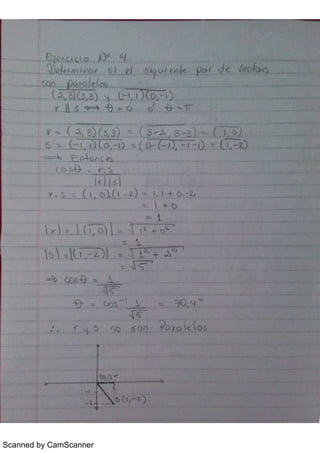 Ejercicio Nº 4
Determinar si el siguiente par de vectores
son paralelos
(2,3)(3,3) y (-1,1)(0,-1)
r || s ⟺ θ = 0 o' θ = π
r = (2,3)(3,3) = (3-2, 3-3) = (1,0)
s = (-1,1)(0,-1) = (0-(-1), -1-1) = (1,-2)
⟹ Entonces
cos θ = r.s
|r||s|
r.s = (1,0).(1-2) = 1.1 + 0.-2
= 1 + 0
= 1
|r| = |(1,0)| = √1² + 0²
= 1
|s| = |(1,-2)| = √1² + 2²
= √5
⟹ cos θ = 1
√5
θ = cos⁻¹ 1 = 70,4°
√5
∴ r y s no son Paralelos
-1
-2 s(1,-2)
Scanned by CamScanner